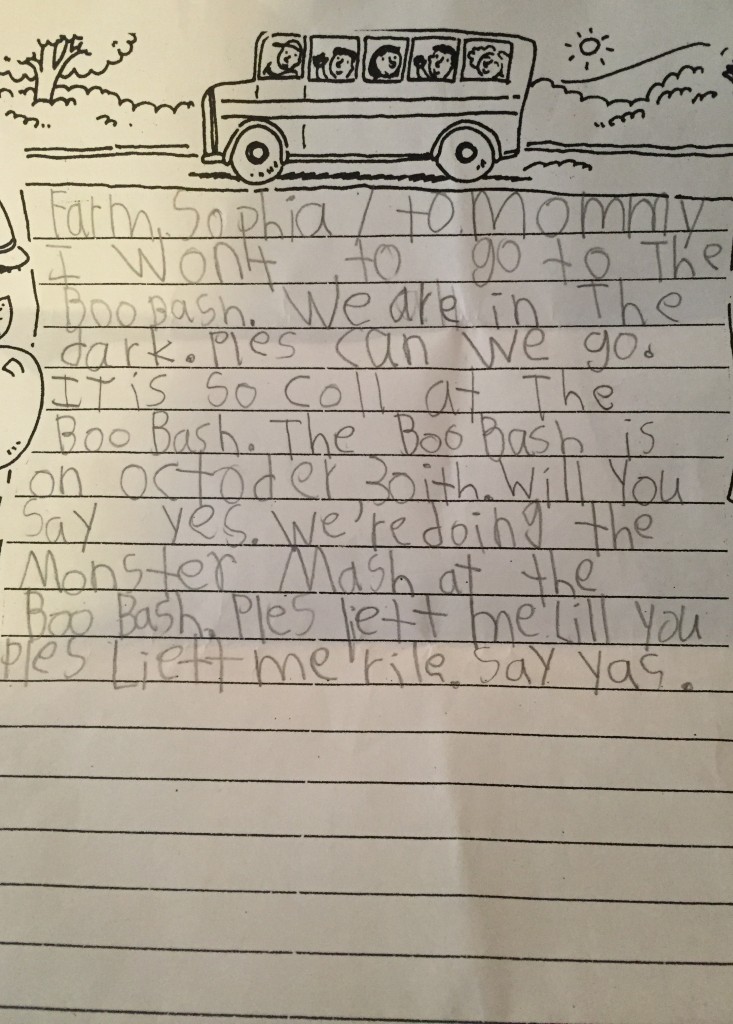 Farm. Sophia / to Mommy
I wont to go to The
Boo Bash. We are in The
dark. Ples can we go.
IT is so coll at The
Boo Bash. The Boo Bash is
on octoder 30ith. Will You
Say yes. We're doing the
Monster Mash at the
Boo Bash. Ples lett me Lill you
Ples Liett me rile. Say yas.